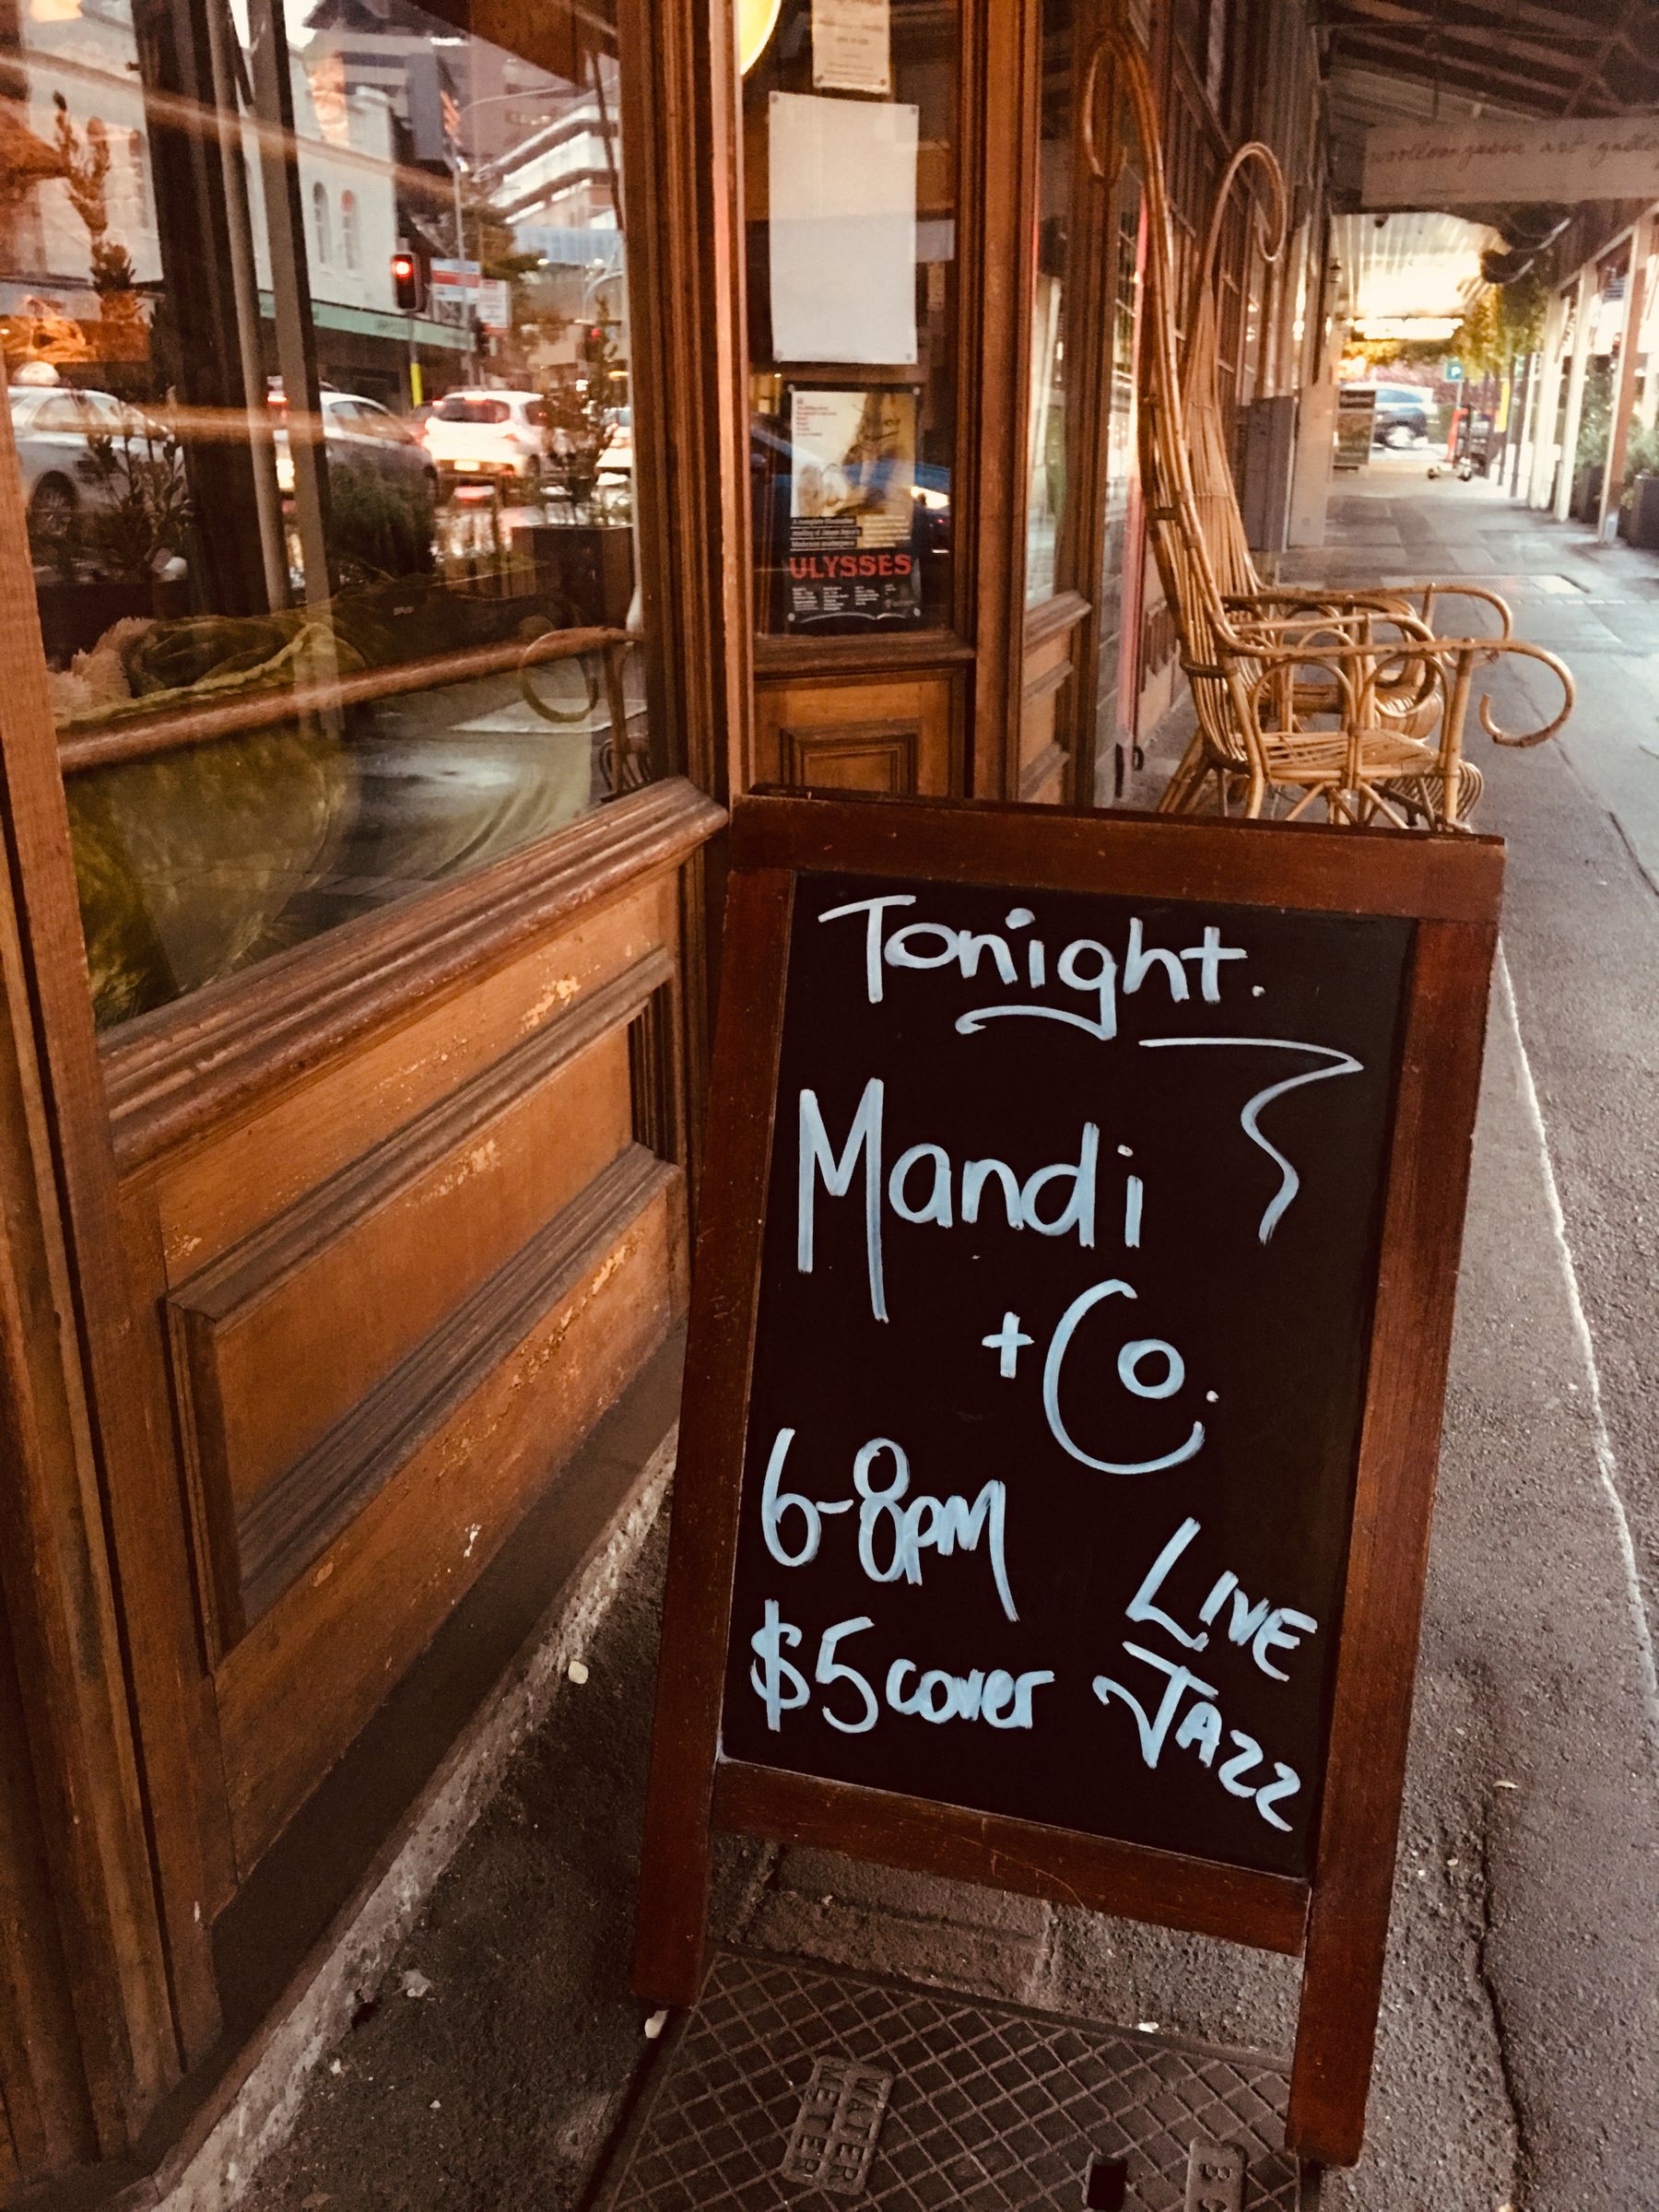 woolloongabba art gallery
ULYSSES
Tonight.
Mandi
+ Co.
6-8PM
$5 cover
LIVE
JAZZ
WATER
METER